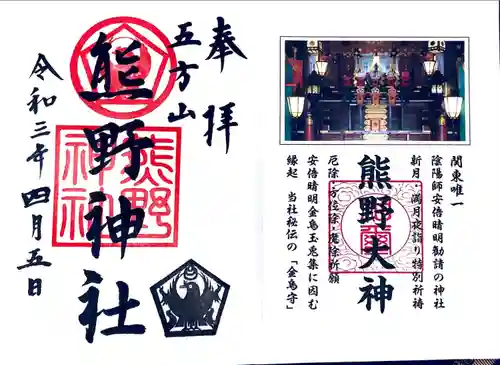 奉拝
五方山
熊野神社
熊野神社
令和三年四月五日
関東唯一
陰陽師安倍晴明勧請の神社
新月・満月夜詣り特別祈祷
熊野大神
厄除・方位除・魔除祈願
安倍晴明金烏玉兎集に因む
縁起 当社秘伝の「金烏守」